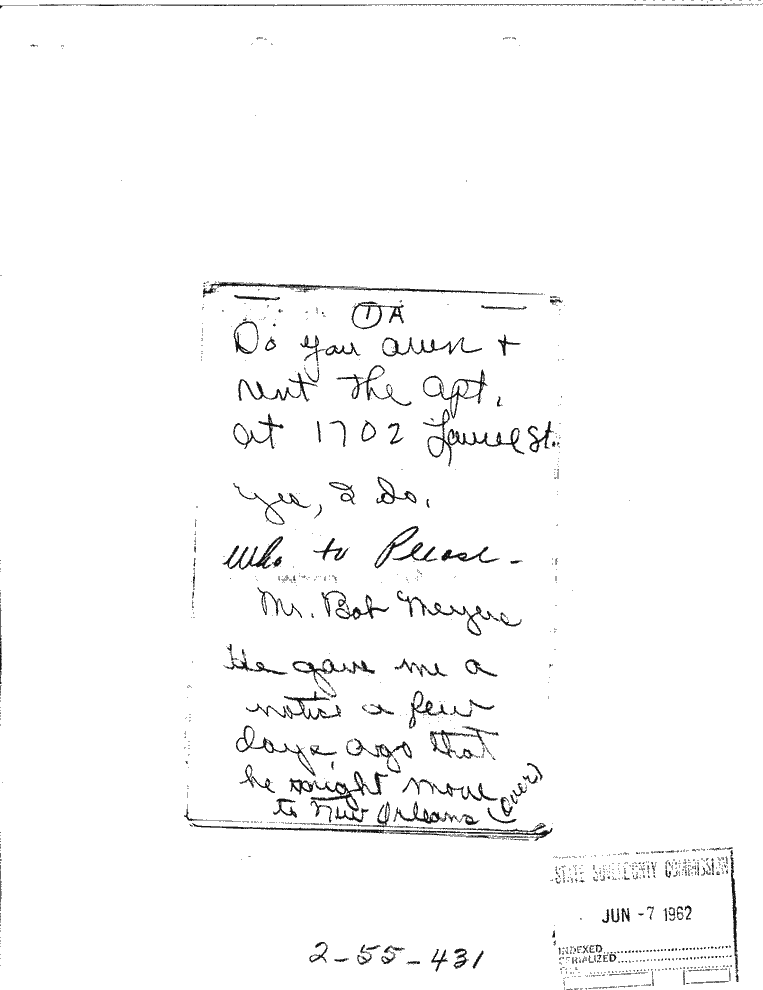 ① A
Do you own +
rent the apt.
at 1702 Laurel St.
Yes, I do.
Who to Please -
Mr. Bob Meyers
He gave me a
notice a few
days ago that
he might move
to New Orleans (over)
STATE SOVEREIGNTY COMMISSION
JUN -7 1962
INDEXED
SERIALIZED
FILE
2-55-431